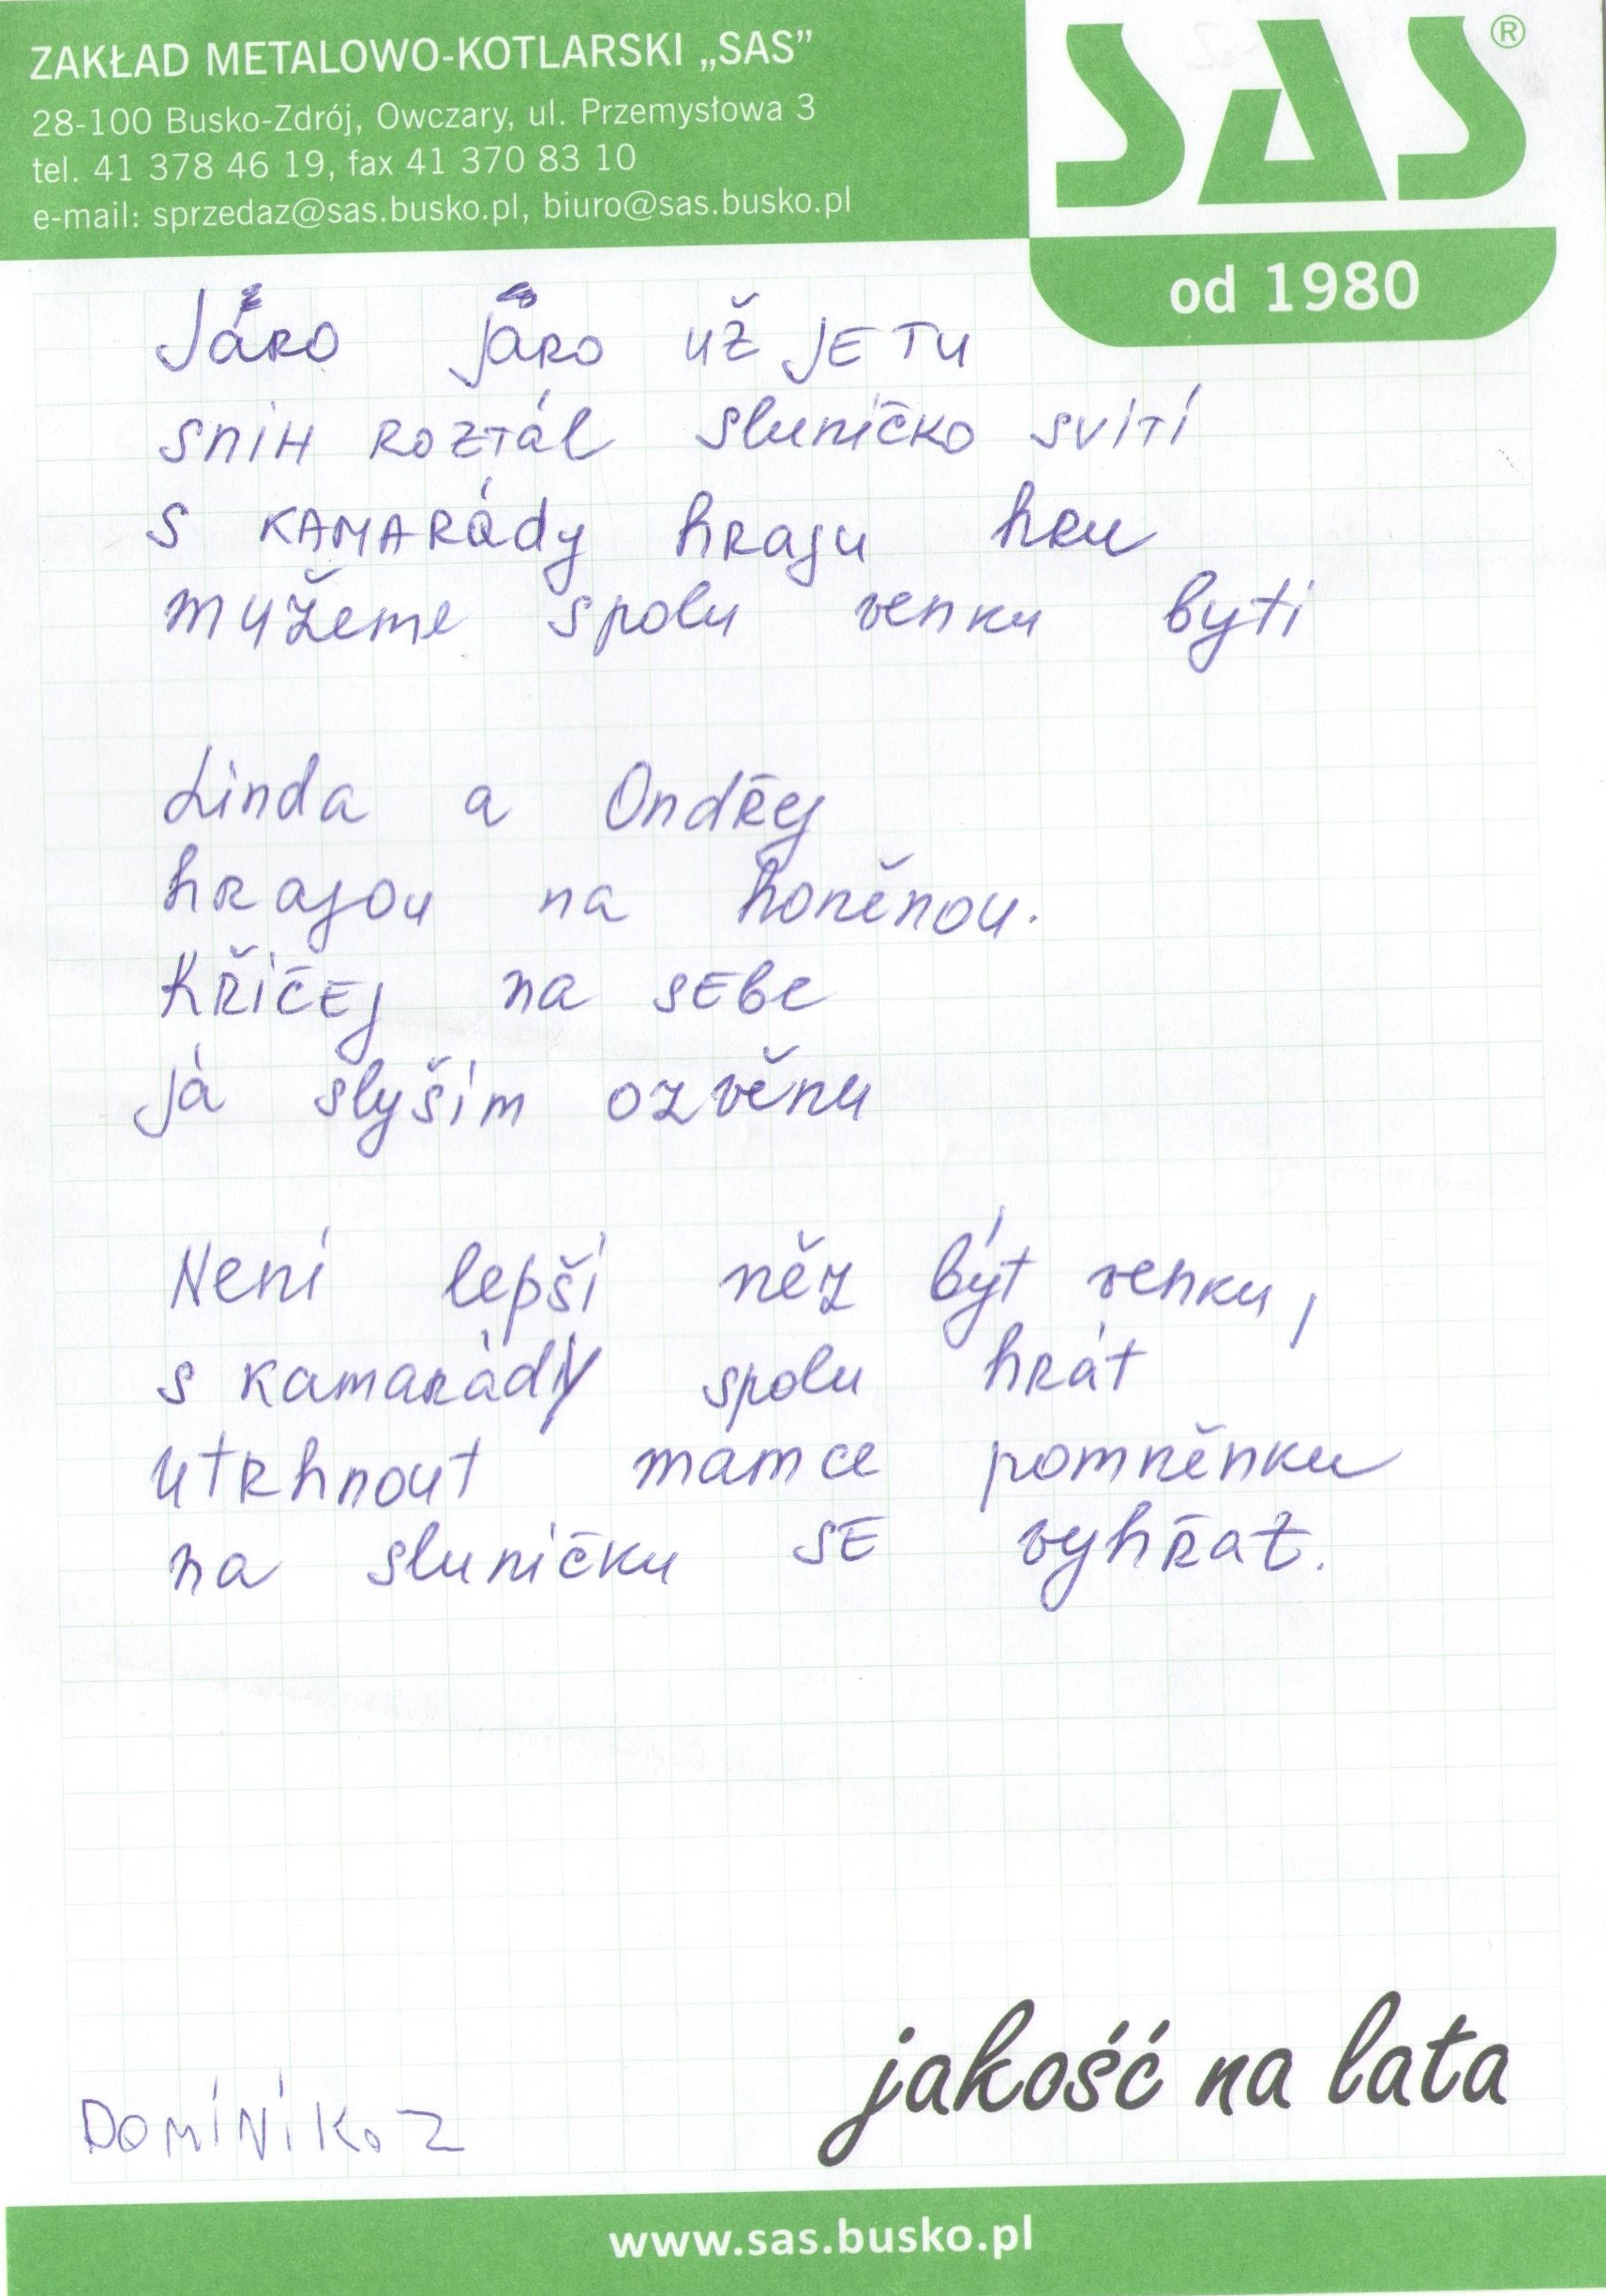 ZAKŁAD METALOWO-KOTLARSKI „SAS”
28-100 Busko-Zdrój, Owczary, ul. Przemysłowa 3
tel. 41 378 46 19, fax 41 370 83 10
e-mail: sprzedaz@sas.busko.pl, biuro@sas.busko.pl
SAS®
od 1980
Jaro jaro už je tu
snih roztál sluničko svítí
s kamarády hraju hru
mužeme spolu venku byti
Linda a Ondřej
hrajou na honěnou.
Křičej na sebe
já slyším ozvěnu
Není lepší něz být venku,
s kamarády spolu hrát
utrhnout mamce pomněnku
na sluníčku se vyhřat.
jakość na lata
DOMINIK. Z
www.sas.busko.pl